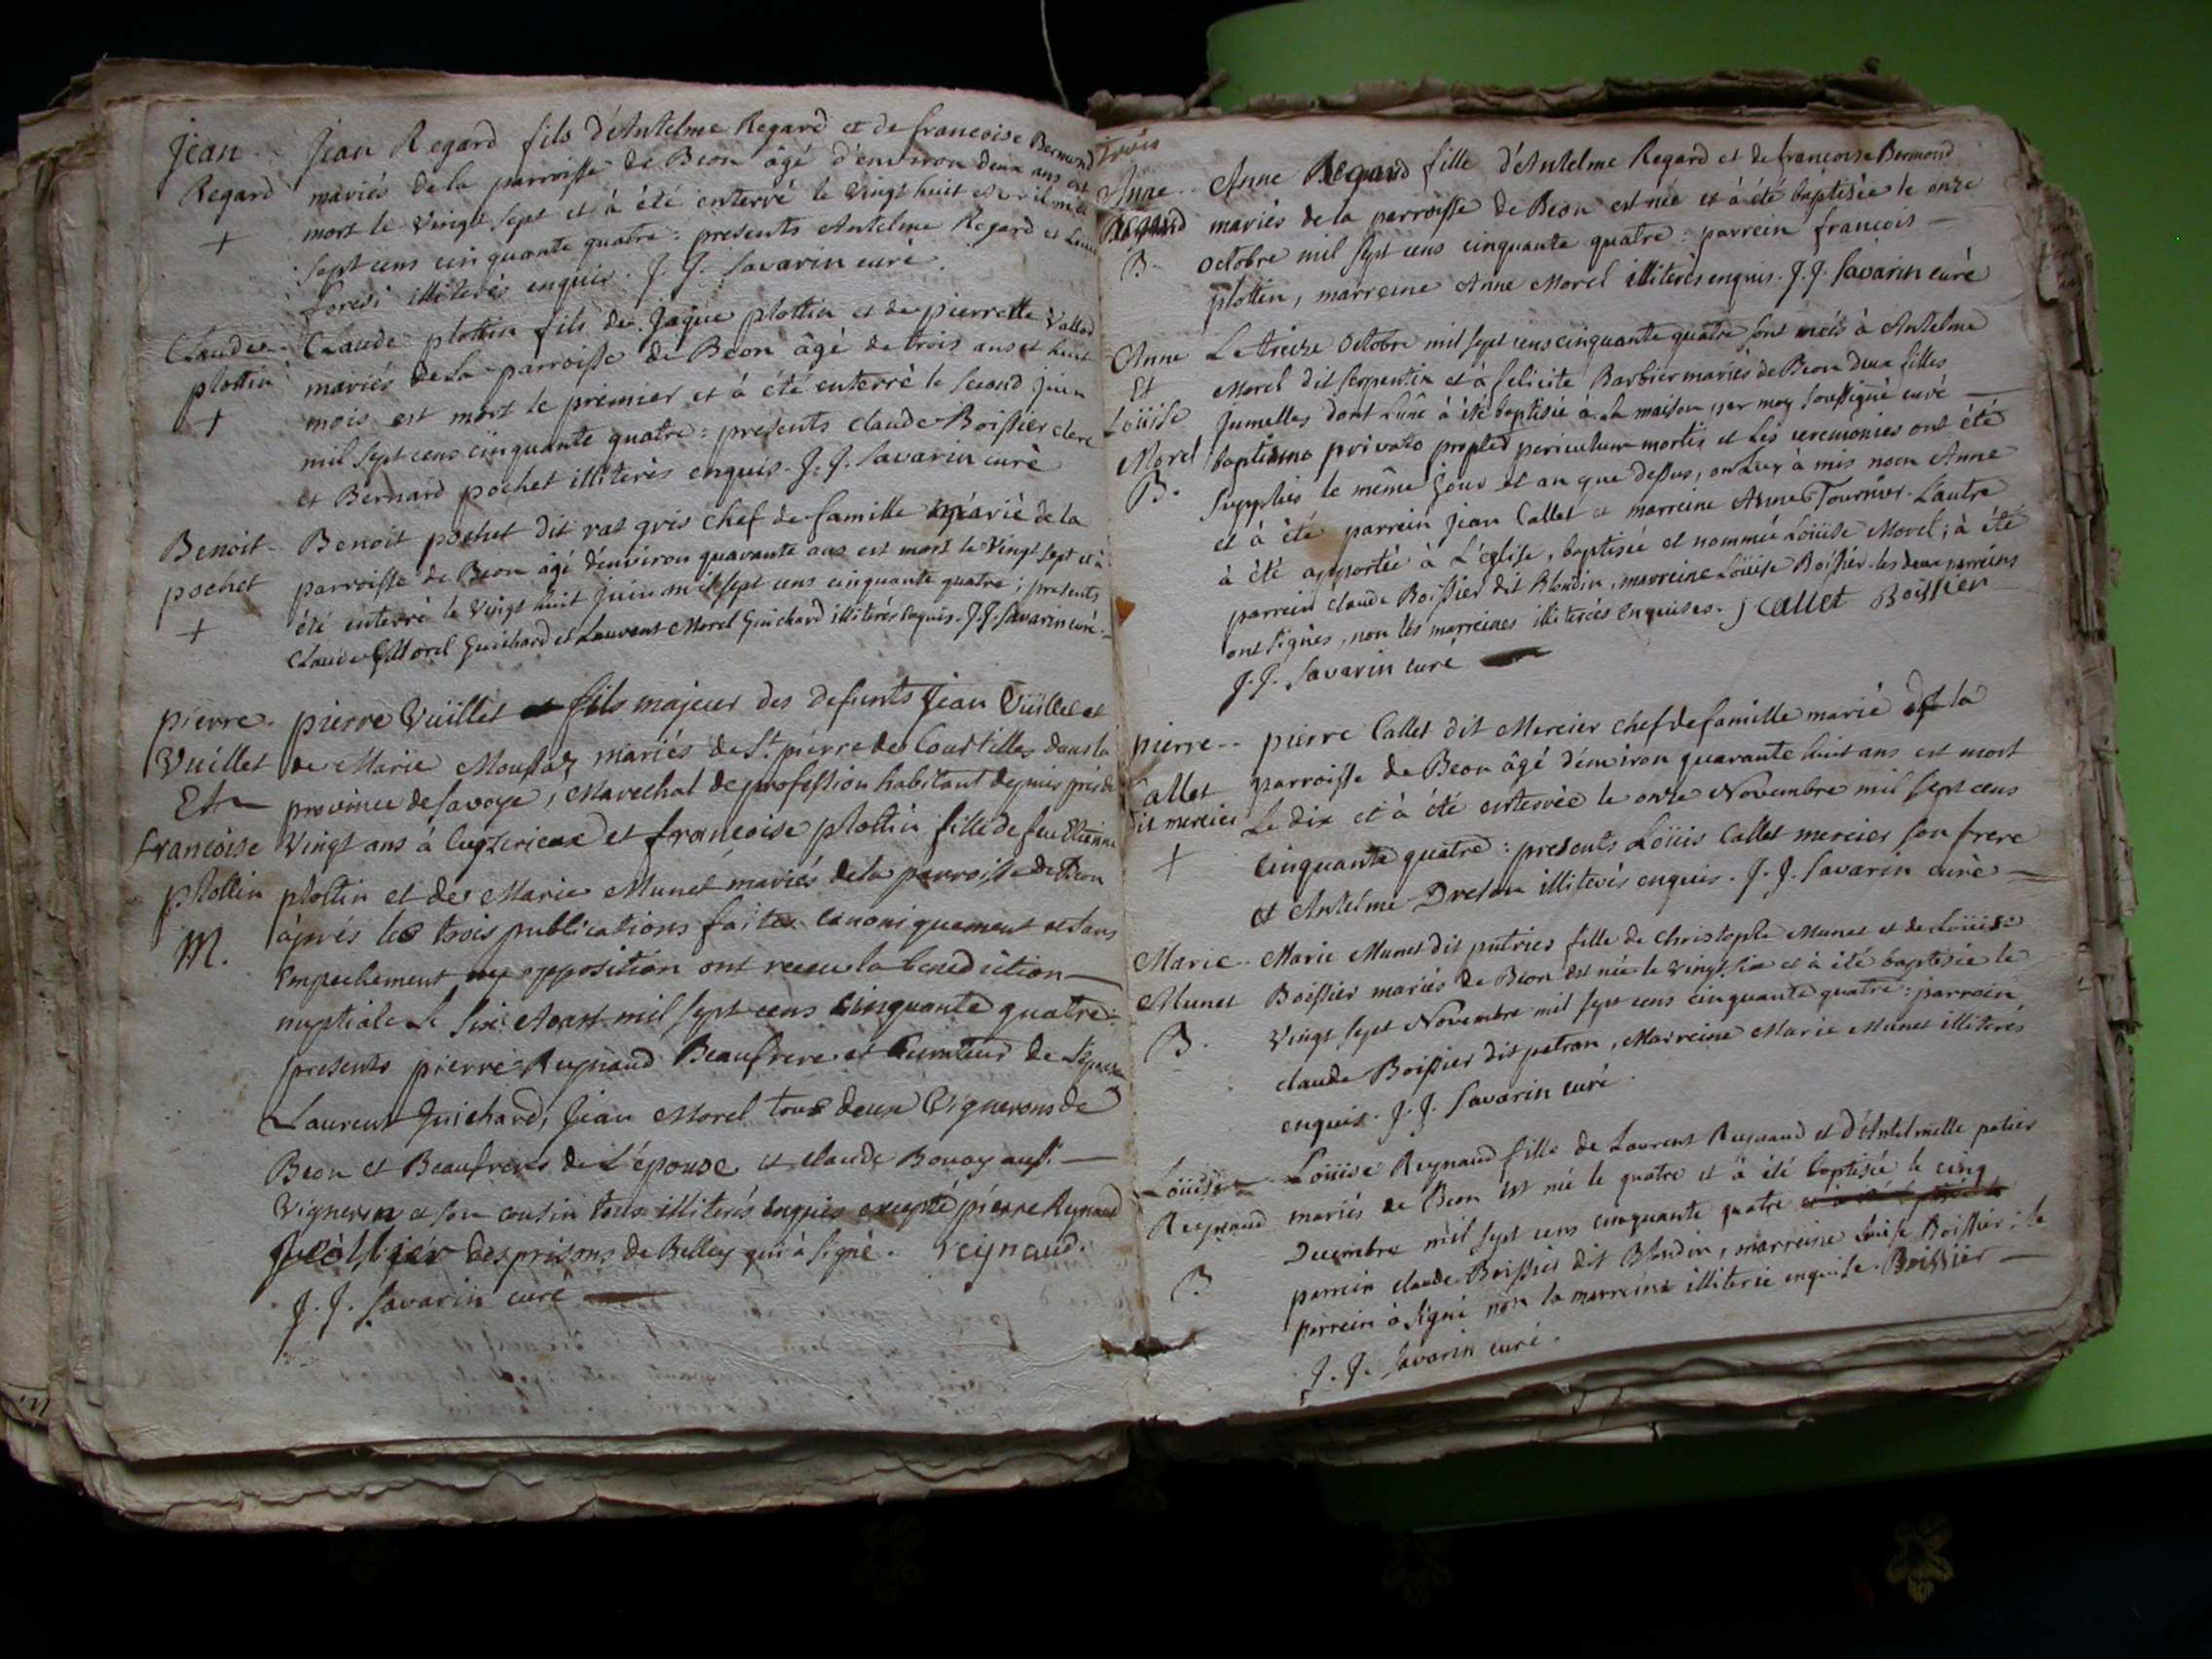 Jean
Regard
+
Jean Regard fils d'Antelme Regard et de francoise Bermond
mariés de la parroisse de Beon âgé d'environ deux ans est
mort le vingt sept et à été enterré le vingt huit avril mil
sept cens cinquante quatre : presents Antelme Regard et
illiterés enquis. J. J. Savarin curé.
Claude
plottin
+
Claude plottin fils de Jaque plottin et de pierrette Vallod
mariés de la parroisse de Beon âgé de trois ans et huit
mois est mort le premier et à été enterré le second juin
mil sept cens cinquante quatre : presents claude Boissier clerc
et Bernard pochet illiterés enquis. J. J. Savarin curé
Benoit
pochet
+
Benoit pochet dit rat gris chef de famille marié de la
parroisse de Beon âgé d'environ quarante ans est mort le vingt sept et à
été enterré le vingt huit juin mil sept cens cinquante quatre ; presents
Claude Morel Guichard et Laurent Morel Guichard illiterés enquis. J. J. Savarin curé.
pierre
Vuillet
Et
francoise
plottin
M.
pierre Vuillet fils majeur des defunts Jean Vuillet et
de Marie mariés de St. pierre de Courtilles dans la
province de Savoye, Marechal de profession habitant depuis près de
Vingt ans à et francoise plottin fille de feu Etienne
plottin et de Marie Munet mariés de la parroisse de Beon
àprés les trois publications faites canoniquement et sans
empechement ny opposition ont receu la benediction
nuptiale le six Aoust mil sept cens cinquante quatre :
presents pierre Reynaud Beaufrere et Curateur de l'épouse
Laurent Guichard, Jean Morel tous deux Vignerons de
Beon et Beaufreres de L'épouse et claude Bovay aussi
Vigneron et son cousin tous illiterés enquis excepté pierre Reynaud
Geôllier des prisons de Belley qui à signé. reynaud.
J. J. Savarin curé
trois
Anne
Regard
B.
Anne Regard fille d'Antelme Regard et de francoise Bermond
mariés de la parroisse de Beon est née et à été baptisée le onze
octobre mil sept cens cinquante quatre : parrein francois
plottin, marreine Anne Morel illiterés enquis. J. J. Savarin curé
Anne
Et
Loüise
Morel
B.
Le treize Octobre mil sept cens cinquante quatre sont nées à Antelme
Morel dit serpentin et à felicite Barbier mariés de Beon deux filles
Jumelles dont L'une à été baptisée à la maison par moy soussigné curé
baptismo privato propter periculum mortis et les ceremonies ont été
supplées le même jour et an que dessus, on luy à mis nom Anne
et à été parrein jean Callet et marreine Anne Tournier. L'autre
à été apportée à L'église, baptisée et nommée Loüise Morel ; à été
parrein claude Boissier dit Blondin, marreine Loüise Boissier. les deux parreins
ont signés, non les marreines illiterées enquises. j callet Boissier
J. J. Savarin curé
pierre
Callet
dit mercier
+
pierre Callet dit Mercier chef de famille marié de la
parroisse de Beon âgé d'environ quarante huit ans est mort
Le dix et à été enterrée le onze Novembre mil sept cens
cinquante quatre : presents Loüis Callet mercier son frere
et Antelme illiterés enquis. J. J. Savarin curé
Marie
Munet
B.
Marie Munet dit putrier fille de christophle Munet et de Loüise
Boissier mariés de Beon est née le vingt six et à été baptisée le
vingt sept Novembre mil sept cens cinquante quatre : parrein
claude Boissier dit patran, Marreine Marie Munet illiterés
enquis. J. J. Savarin curé.
Loüise
Reynaud
B
Loüise Reynaud fille de Laurent Reynaud et d'Antelmette
mariés de Beon est née le quatre et à été baptisée le cinq
Decembre mil sept cens cinquante quatre
parrein claude Boissier dit Blondin, marreine Louise Boissier : le
parrein à signé non la marreine illiterée enquise. Boissier
J. J. Savarin curé.